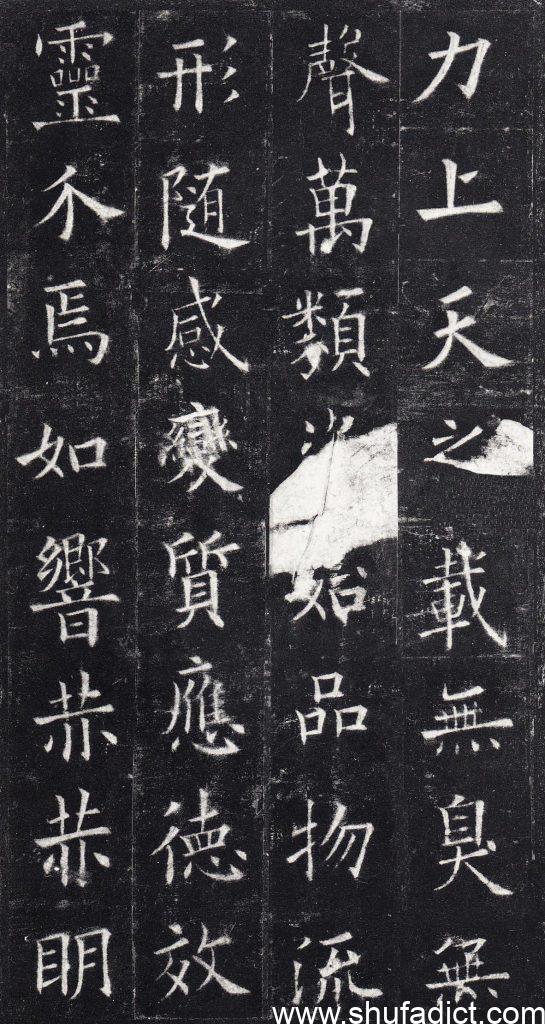 力上天之載無臭無
聲萬類始品物流
形随感變質應德效
靈介焉如響赫赫眀
www.shufadict.com